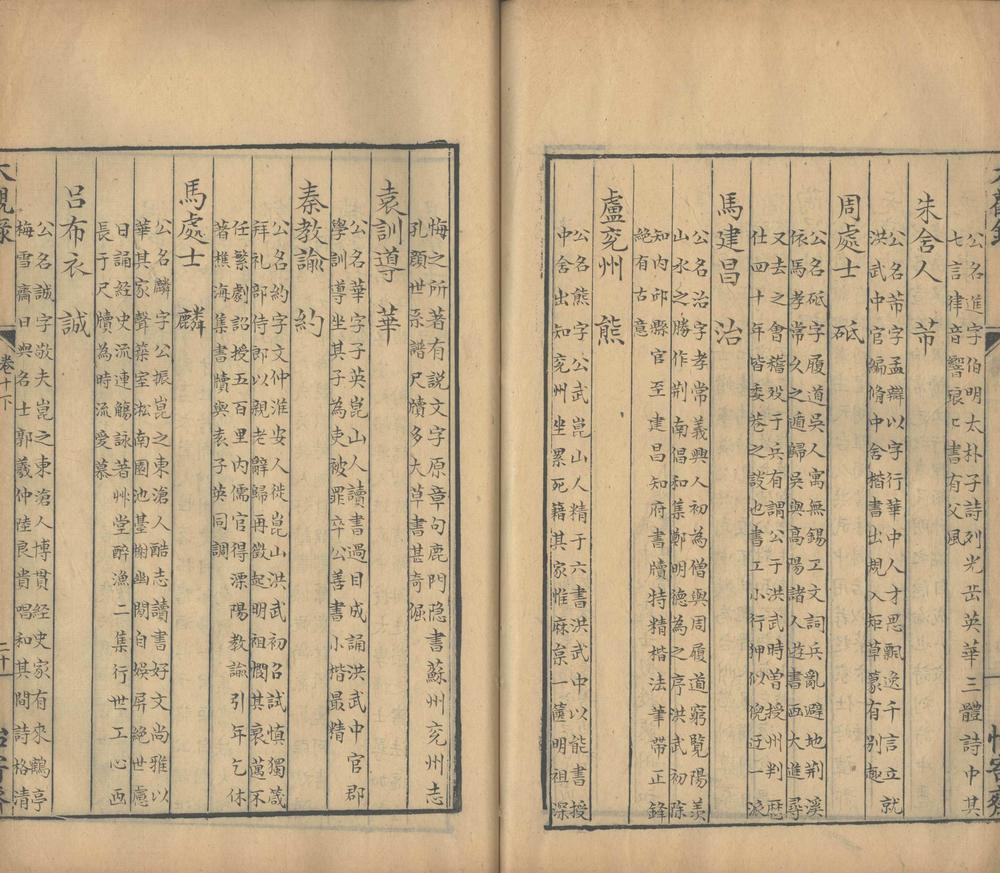 公名進字伯明太朴子詩列光岳英華三體詩中其
七言律音響琅〻書有父風
朱舍人 芾
公名芾字孟辯以字行華中人才思飄逸千言立就
洪武中官編脩中舍楷書出規入矩草篆有別趣
周處士 砥
公名砥字履道吳人寓無錫工文詞兵亂避地荆溪
依馬孝常久之遁歸吳與高陽諸人遊書画大進尋
又去之會稽歿于兵有謂公于洪武時曽授州判歷
仕四十年皆委巷之談也書工小行狎似倪迂一派
馬建昌 治
公名治字孝常義興人初為僧與周履道窮覽陽羨
山水之勝作荆南倡和集鄭明德為之序洪武初除
知内邱縣官至建昌知府書牘特精楷法筆帶正鋒
絶有古意
盧兖州 熊
公名熊字公武崑山人精于六書洪武中以能書授
中舍出知兖州坐累死籍其家惟麻枲一篋明祖深
悔之所著有説文字原章句鹿門隐書蘇州兖州志
孔顔世系譜尺牘多大草書甚奇倔
袁訓導 華
公名華字子英崑山人讀書過目成誦洪武中官郡
學訓導坐其子為吏被罪卒公善書小楷最精
秦教諭 約
公名約字文仲淮安人徙崑山洪武初名試慎獨箴
拜礼部侍郎以親老辭歸再徵起明祖憫其衰邁不
任繁劇詔授五百里内儒官得溧陽教諭引年乞休
著樵海集書牘與袁子英同調
馬處士 麟
公名麟字公振崑之東滄人酷志讀書好文尚雅以
華其家聲築室淞南園池臺榭幽閴自娯屏絶世慮
日誦経史流連觴詠著艸堂醉漁二集行世工心画
長于尺牘為時流愛慕
呂布衣 誠
公名誠字敬夫崑之東滄人博貫経史家有來鶴亭
梅雪齋日與名士郭羲仲陸良貴唱和其間詩格清
大觀錄
卷十下
二十
怡寄齋